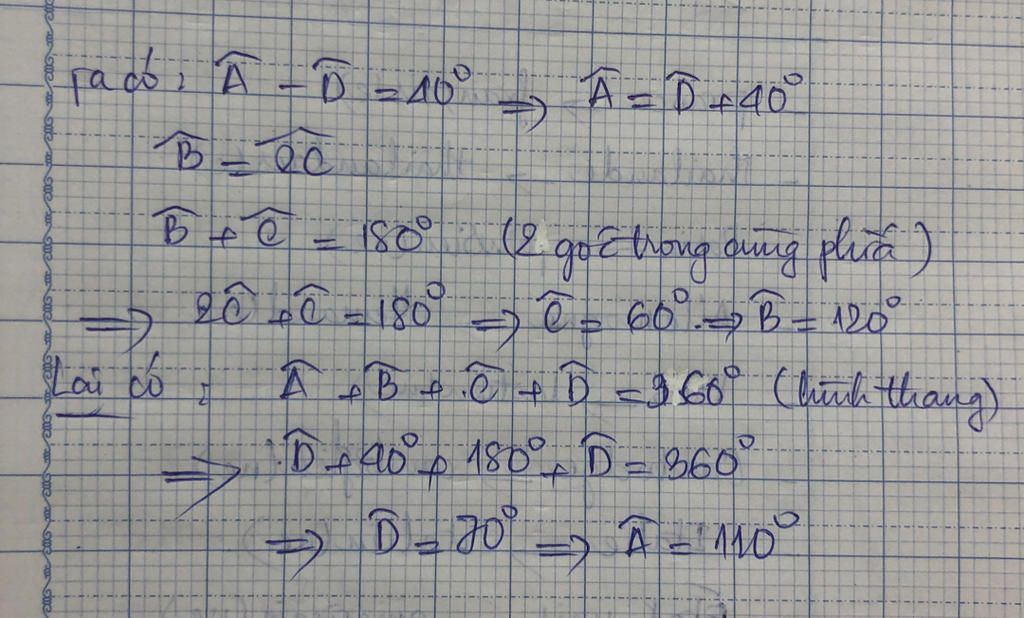 Ta có : Â - D̂ = 40° => Â = D̂ + 40°
B̂ = 2Ĉ
B̂ + Ĉ = 180° (2 góc trong cùng phía)
=> 2Ĉ + Ĉ = 180° => Ĉ = 60° => B̂ = 120°
Lại có : Â + B̂ + Ĉ + D̂ = 360° (hình thang)
=> D̂ + 40° + 180° + D̂ = 360°
=> D̂ = 70° => Â = 110°